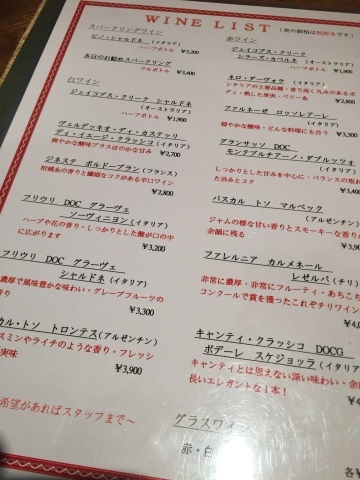 WINE LIST
(表の価格は税抜きです
スパークリングワイン
ピノ・シャルドネ (イタリア)
ハーフボトル ¥2,200
本日のお勧めスパークリング
フルボトル ¥3,400
白ワイン
ジェイコブス・クリーク シャルドネ
(オーストラリア)
ハーフボトル ¥1,700
ヴェルデッキオ・ディ・カステッリ
ディ・イエージ・クラッシコ(イタリア)
爽やかな酸味プラスほのかな甘み
¥2,700
ジネステ ボルドーブラン(フランス)
柑橘系の香りと繊細なコクがある辛口ワイン
¥2,800
フリウリ DOC グラーヴェ
ソーヴィニヨン(イタリア)
ハーブや花の香り・しっかりとした酸が口の中
に広がります
¥3,200
フリウリ DOC グラーヴェ
シャルドネ(イタリア)
濃厚で風味豊かな味わい・グレープフルーツの
香り
¥3,300
カル・トソ トロンテス(アルゼンチン)
スミンやライチのような香り・フレッシ
果実味
¥3,900
希望があればスタッフまで～
赤ワイン
ジェイコブス・クリーク
シラーズ・カベルネ
(オーストラ
ハーフボトル ¥1,
ネロ・ダーヴォラ(イタリア)
シチリアの土着品種・香り高く丸みのあるボ
ディ・熟した果実・ベリー系
¥2,80
ファルネーゼ ロッソレアーレ
(イタリア)
穏やかな酸味・どんな料理にも合う
¥3,300
グランサッソ DOC
モンテプルチアーノ・ダブルッツォ
(イタリア)
しっかりとした甘みを中心に・バランスの取れ
た渋みとコク
¥3,400
パスカル トソ マルベック
(アルゼンチン)
ジャムの様な甘い香りとスモーキーな香りが
余韻に残る
¥3,90
ファレルニア カルメネール
レゼルバ(チリ)
非常に濃厚、非常にフルーティ・あちこち
コンクールで賞を獲ったこれぞチリワイン
¥4
キャンティ・クラッシコ DOCG
ポデーレ スケジョッラ(イタリ
キャンティとは思えない深い味わい・余韻
長いエレガントな1本！
¥4
グラスワイン
赤・白
各¥